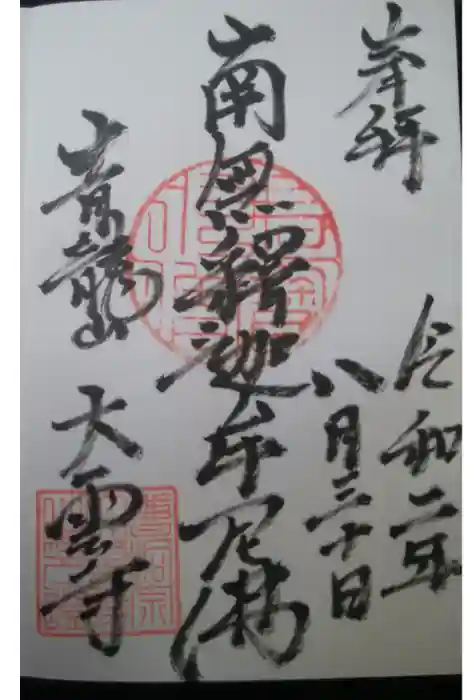 奉拝
令和二年
八月三十日
南無釋迦牟尼佛
青龍山
大雲寺